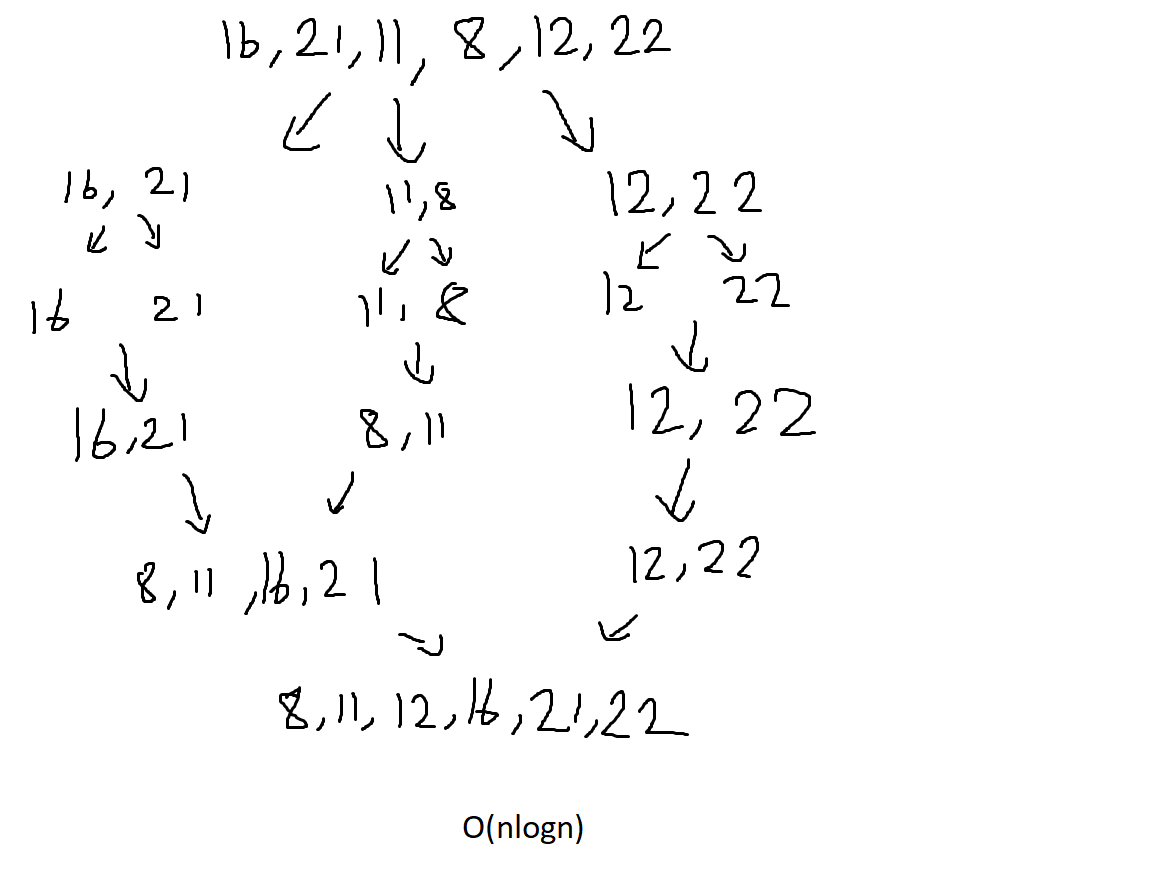 16, 21, 11, 8, 12, 22
16, 21 11, 8 12, 22
16 21 11, 8 12 22
16, 21 8, 11 12, 22
8, 11, 16, 21 12, 22
8, 11, 12, 16, 21, 22
O(nlogn)